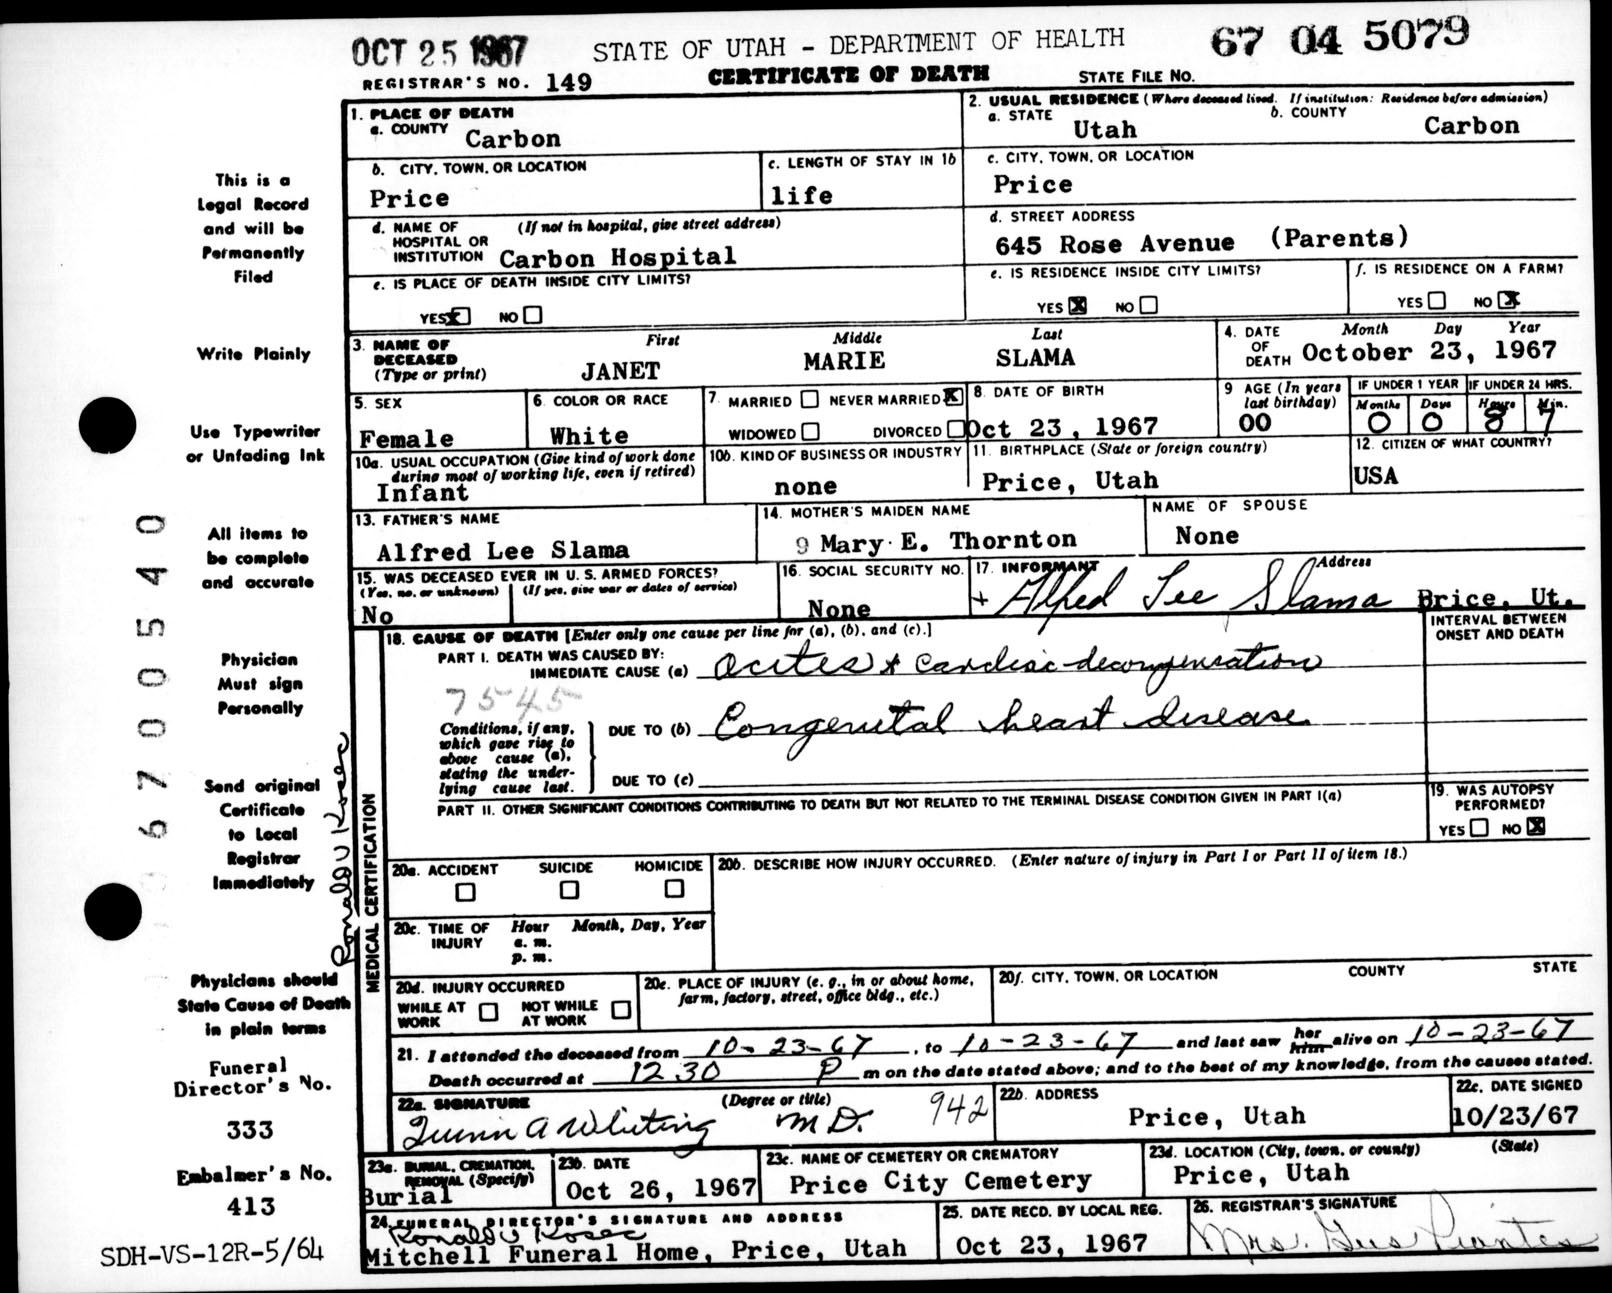 OCT 25 1967 STATE OF UTAH - DEPARTMENT OF HEALTH 67 04 5079
REGISTRAR'S NO. 149 CERTIFICATE OF DEATH STATE FILE NO.
1. PLACE OF DEATH
a. COUNTY Carbon
2. USUAL RESIDENCE (Where deceased lived. If institution: Residence before admission)
a. STATE Utah b. COUNTY Carbon
b. CITY, TOWN, OR LOCATION Price
c. LENGTH OF STAY IN 1b life
c. CITY, TOWN, OR LOCATION
Price
d. NAME OF HOSPITAL OR INSTITUTION (If not in hospital, give street address)
Carbon Hospital
d. STREET ADDRESS
645 Rose Avenue (Parents)
e. IS PLACE OF DEATH INSIDE CITY LIMITS?
YES X NO
e. IS RESIDENCE INSIDE CITY LIMITS?
YES X NO
f. IS RESIDENCE ON A FARM?
YES NO X
3. NAME OF DECEASED (Type or print)
First Middle Last
JANET MARIE SLAMA
4. DATE OF DEATH Month Day Year
October 23, 1967
5. SEX
Female
6. COLOR OR RACE
White
7. MARRIED NEVER MARRIED X
WIDOWED DIVORCED
8. DATE OF BIRTH
Oct 23, 1967
9 AGE (In years last birthday)
00
IF UNDER 1 YEAR IF UNDER 24 HRS.
Months Days Hours Min.
0 0 8 7
10a. USUAL OCCUPATION (Give kind of work done during most of working life, even if retired)
Infant
10b. KIND OF BUSINESS OR INDUSTRY
none
11. BIRTHPLACE (State or foreign country)
Price, Utah
12. CITIZEN OF WHAT COUNTRY?
USA
13. FATHER'S NAME
Alfred Lee Slama
14. MOTHER'S MAIDEN NAME
9 Mary E. Thornton
NAME OF SPOUSE
None
15. WAS DECEASED EVER IN U. S. ARMED FORCES?
(Yes, no, or unknown) (If yes, give war or dates of service)
No
16. SOCIAL SECURITY NO.
None
17. INFORMANT Address
+ Alfred Lee Slama Price, Ut.
MEDICAL CERTIFICATION
18. CAUSE OF DEATH [Enter only one cause per line for (a), (b), and (c).]
INTERVAL BETWEEN ONSET AND DEATH
PART I. DEATH WAS CAUSED BY:
IMMEDIATE CAUSE (a) Acites & Cardiac decompensation
7545
Conditions, if any, which gave rise to above cause (a), stating the underlying cause last.
DUE TO (b) Congenital heart disease
DUE TO (c)
PART II. OTHER SIGNIFICANT CONDITIONS CONTRIBUTING TO DEATH BUT NOT RELATED TO THE TERMINAL DISEASE CONDITION GIVEN IN PART I(a)
19. WAS AUTOPSY PERFORMED?
YES NO X
20a. ACCIDENT SUICIDE HOMICIDE
20b. DESCRIBE HOW INJURY OCCURRED. (Enter nature of injury in Part I or Part II of item 18.)
20c. TIME OF INJURY Hour Month, Day, Year
a. m.
p. m.
20d. INJURY OCCURRED
WHILE AT WORK NOT WHILE AT WORK
20e. PLACE OF INJURY (e. g., in or about home, farm, factory, street, office bldg., etc.)
20f. CITY, TOWN, OR LOCATION COUNTY STATE
21. I attended the deceased from 10-23-67, to 10-23-67 and last saw her him alive on 10-23-67
Death occurred at 12 30 P m on the date stated above; and to the best of my knowledge, from the causes stated.
22a. SIGNATURE (Degree or title)
Quinn A Whiting M D. 942
22b. ADDRESS
Price, Utah
22c. DATE SIGNED
10/23/67
23a. BURIAL, CREMATION, REMOVAL (Specify)
Burial
23b. DATE
Oct 26, 1967
23c. NAME OF CEMETERY OR CREMATORY
Price City Cemetery
23d. LOCATION (City, town, or county) (State)
Price, Utah
24. FUNERAL DIRECTOR'S SIGNATURE AND ADDRESS
Ronald V Koser
Mitchell Funeral Home, Price, Utah
25. DATE RECD. BY LOCAL REG.
Oct 23, 1967
26. REGISTRAR'S SIGNATURE
Mrs. Gus
This is a
Legal Record
and will be
Permanently
Filed
Write Plainly
Use Typewriter
or Unfading Ink
All items to
be complete
and accurate
Physician
Must sign
Personally
Send original
Certificate
to Local
Registrar
Immediately
Physicians should
State Cause of Death
in plain terms
Funeral
Director's No.
333
Embalmer's No.
413
SDH-VS-12R-5/64
6700540
Ronald V Koser